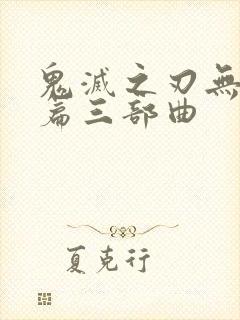 鬼滅之刃無
篇三部曲
夏克行